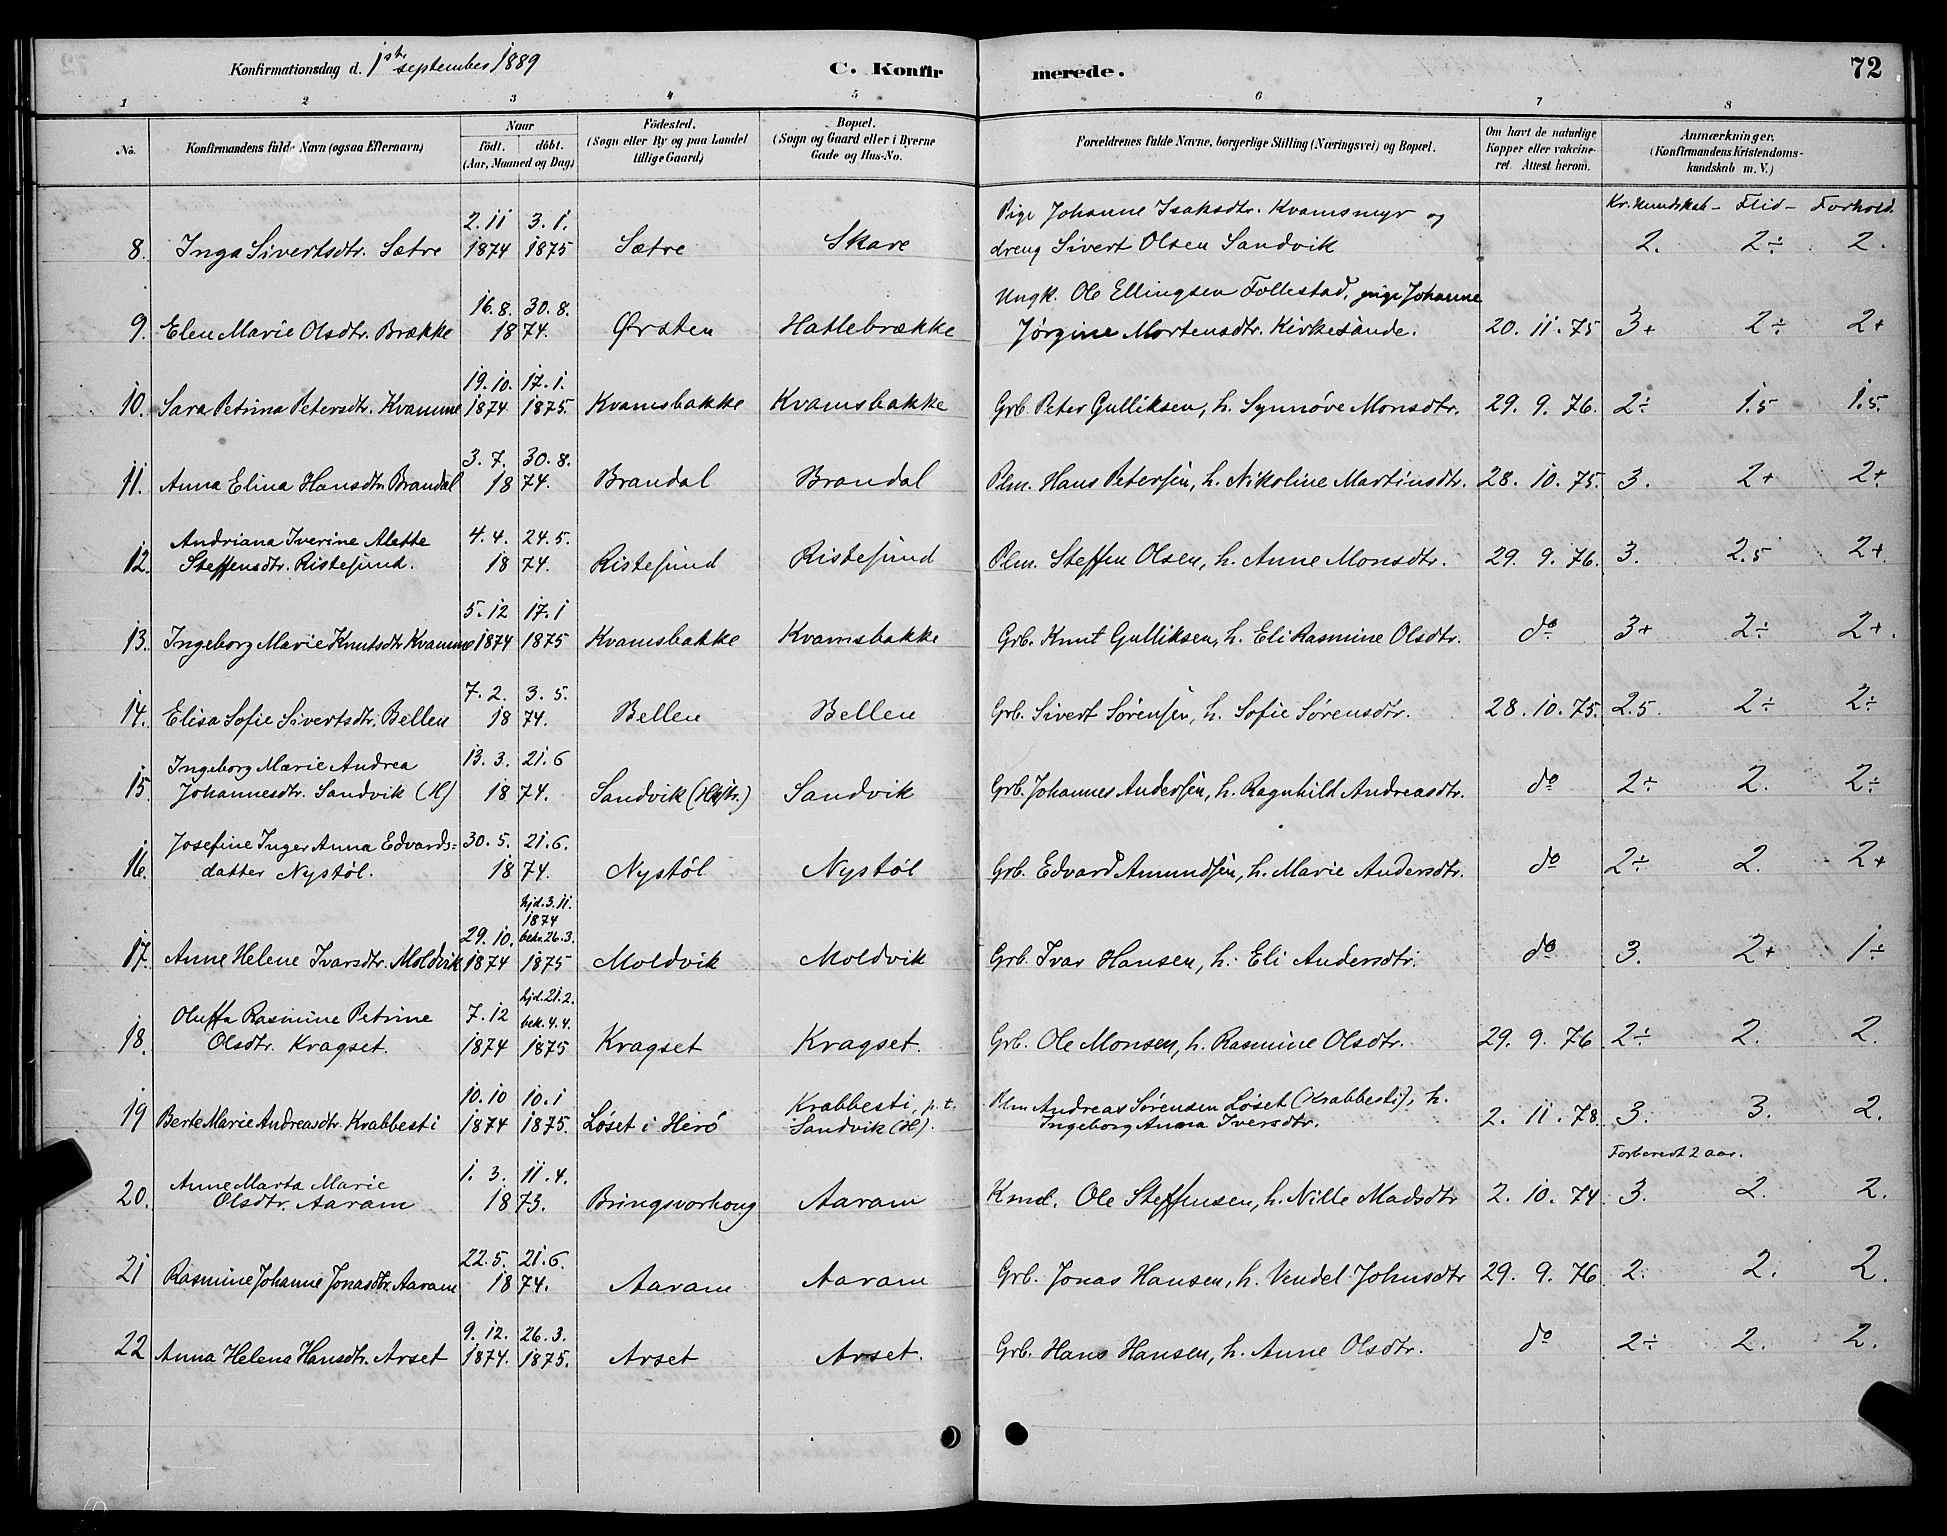 Konfirmationsdag d. 1ste september 1889
C. Konfirmerede.
72
1 2 3 4 5 6 7 8
No. Konfirmandens fulde Navn (ogsaa Efternavn)
Naar
födt. döbt.
(Aar, Maaned og Dag)
Födested.
(Sogn eller By og paa Landet
tillige Gaard)
Bopæl.
(Sogn og Gaard eller i Byerne
Gade og Hus-No.
Forældrenes fulde Navne, borgerlige Stilling (Næringsvei) og Bopæl.
Om havt de naturlige
Kopper eller vakcine-
ret. Attest herom.
Anmærkninger.
(Konfirmandens Kristendoms-
kundskab m. V.)
Kr. kundskab - Flid - Forhold.
8. Inga Sivertsdtr. Sætre 2.11 1874 3.1. 1875 Sætre Skare Pige Johanne Isaksdtr. Kvamsmyr og
dreng Sivert Olsen Sandvik 2. 2÷ 2.
9. Elen Marie Olsdtr. Brække 16.8. 30.8. 1874. Ørsten Hatlebrække Ungk. Ole Ellingsen Follestad, pige Johanne
Jørgine Mortensdtr. Kirkesande. 20.11.75 3+ 2÷ 2+
10. Sara Petrina Petersdtr. Kvamme 19.10. 1874 17.1. 1875. Kvamsbakke Kvamsbakke Grb. Peter Gulliksen, h. Synnøve Monsdtr. 29.9.76. 2÷ 1.5 1.5.
11. Anna Elina Hansdtr. Brandal 3.7. 30.8. 1874. Brandal Brandal Plm. Hans Petersen, h. Nikoline Martinsdtr. 28.10.75. 3. 2+ 2+.
12. Andriana Iverine Alette
Steffensdtr. Ristesund. 4.4. 24.5. 1874. Ristesund Ristesund Plm. Steffen Olsen, h. Anne Monsdtr. 29.9.76. 3. 2.5 2+.
13. Ingeborg Marie Knutsdtr. Kvamme 5.12 1874 17.1 1875 Kvamsbakke Kvamsbakke Grb. Knut Gulliksen, h. Eli Rasmine Olsdtr. do 3+ 2÷ 2+.
14. Elisa Sofie Sivertsdtr. Bellen 7.2. 3.5. 1874. Bellen Bellen Grb. Sivert Sørensen, h. Sofie Sørensdtr. 28.10.75. 2.5 2÷ 2÷
15. Ingeborg Marie Andrea
Johannesdtr. Sandvik (H) 13.3. 21.6 1874. Sandvik Sandvik Grb. Johannes Andersen, h. Ragnhild Andreasdtr. do 2÷ 2. 2÷
16. Josefine Inger Anna Edvards=
datter Nystøl. 30.5. 21.6. 1874. Nystøl Nystøl Grb. Edvard Amundsen, h. Marie Andersdtr. do 2÷ 2. 2+
17. Anne Helene Ivarsdtr. Moldvik 29.10. 1874 hjd. 3.11. 1874 bekr. 26.3. 1875 Moldvik Moldvik Grb. Ivar Hansen, h. Eli Andersdtr. do 3. 2+ 1÷
18. Oluffa Rasmine Petrine
Olsdtr. Kragset. 7.12 1874 hjd. 21.2. bek. 4.4. 1875 Kragset Kragset. Grb. Ole Monsen, h. Rasmine Olsdtr. 29.9.76 2÷ 2. 2.
19 Berte Marie Andreasdtr. Krabbesti 10.10 1874 10.1 1875. Løset i Herø Krabbesti, p.t.
Sandvik (H). Plm Andreas Sørensen Løset (Krabbesti), h.
Ingeborg Anna Iversdtr. 2.11.78 3. 3. 2.
Forberedt 2 aar.
20. Anne Marta Marie
Olsdtr. Aaram 1.3. 11.4. 1873. Bringsvorhoug Aaram Kmd. Ole Steffensen, h. Nille Madsdtr 2.10.74 3. 2. 2.
21 Rasmine Johanne Jonasdtr. Aaram 22.5. 21.6. 1874. Aaram Aaram Grb. Jonas Hansen, h. Vendel Johnsdtr 29.9.76 2. 2. 2.
22 Anna Helena Hansdtr. Arset 9.12. 1874. 26.3. 1875. Arset Arset. Grb. Hans Hansen, h. Anne Olsdtr. do 2÷ 2. 2.